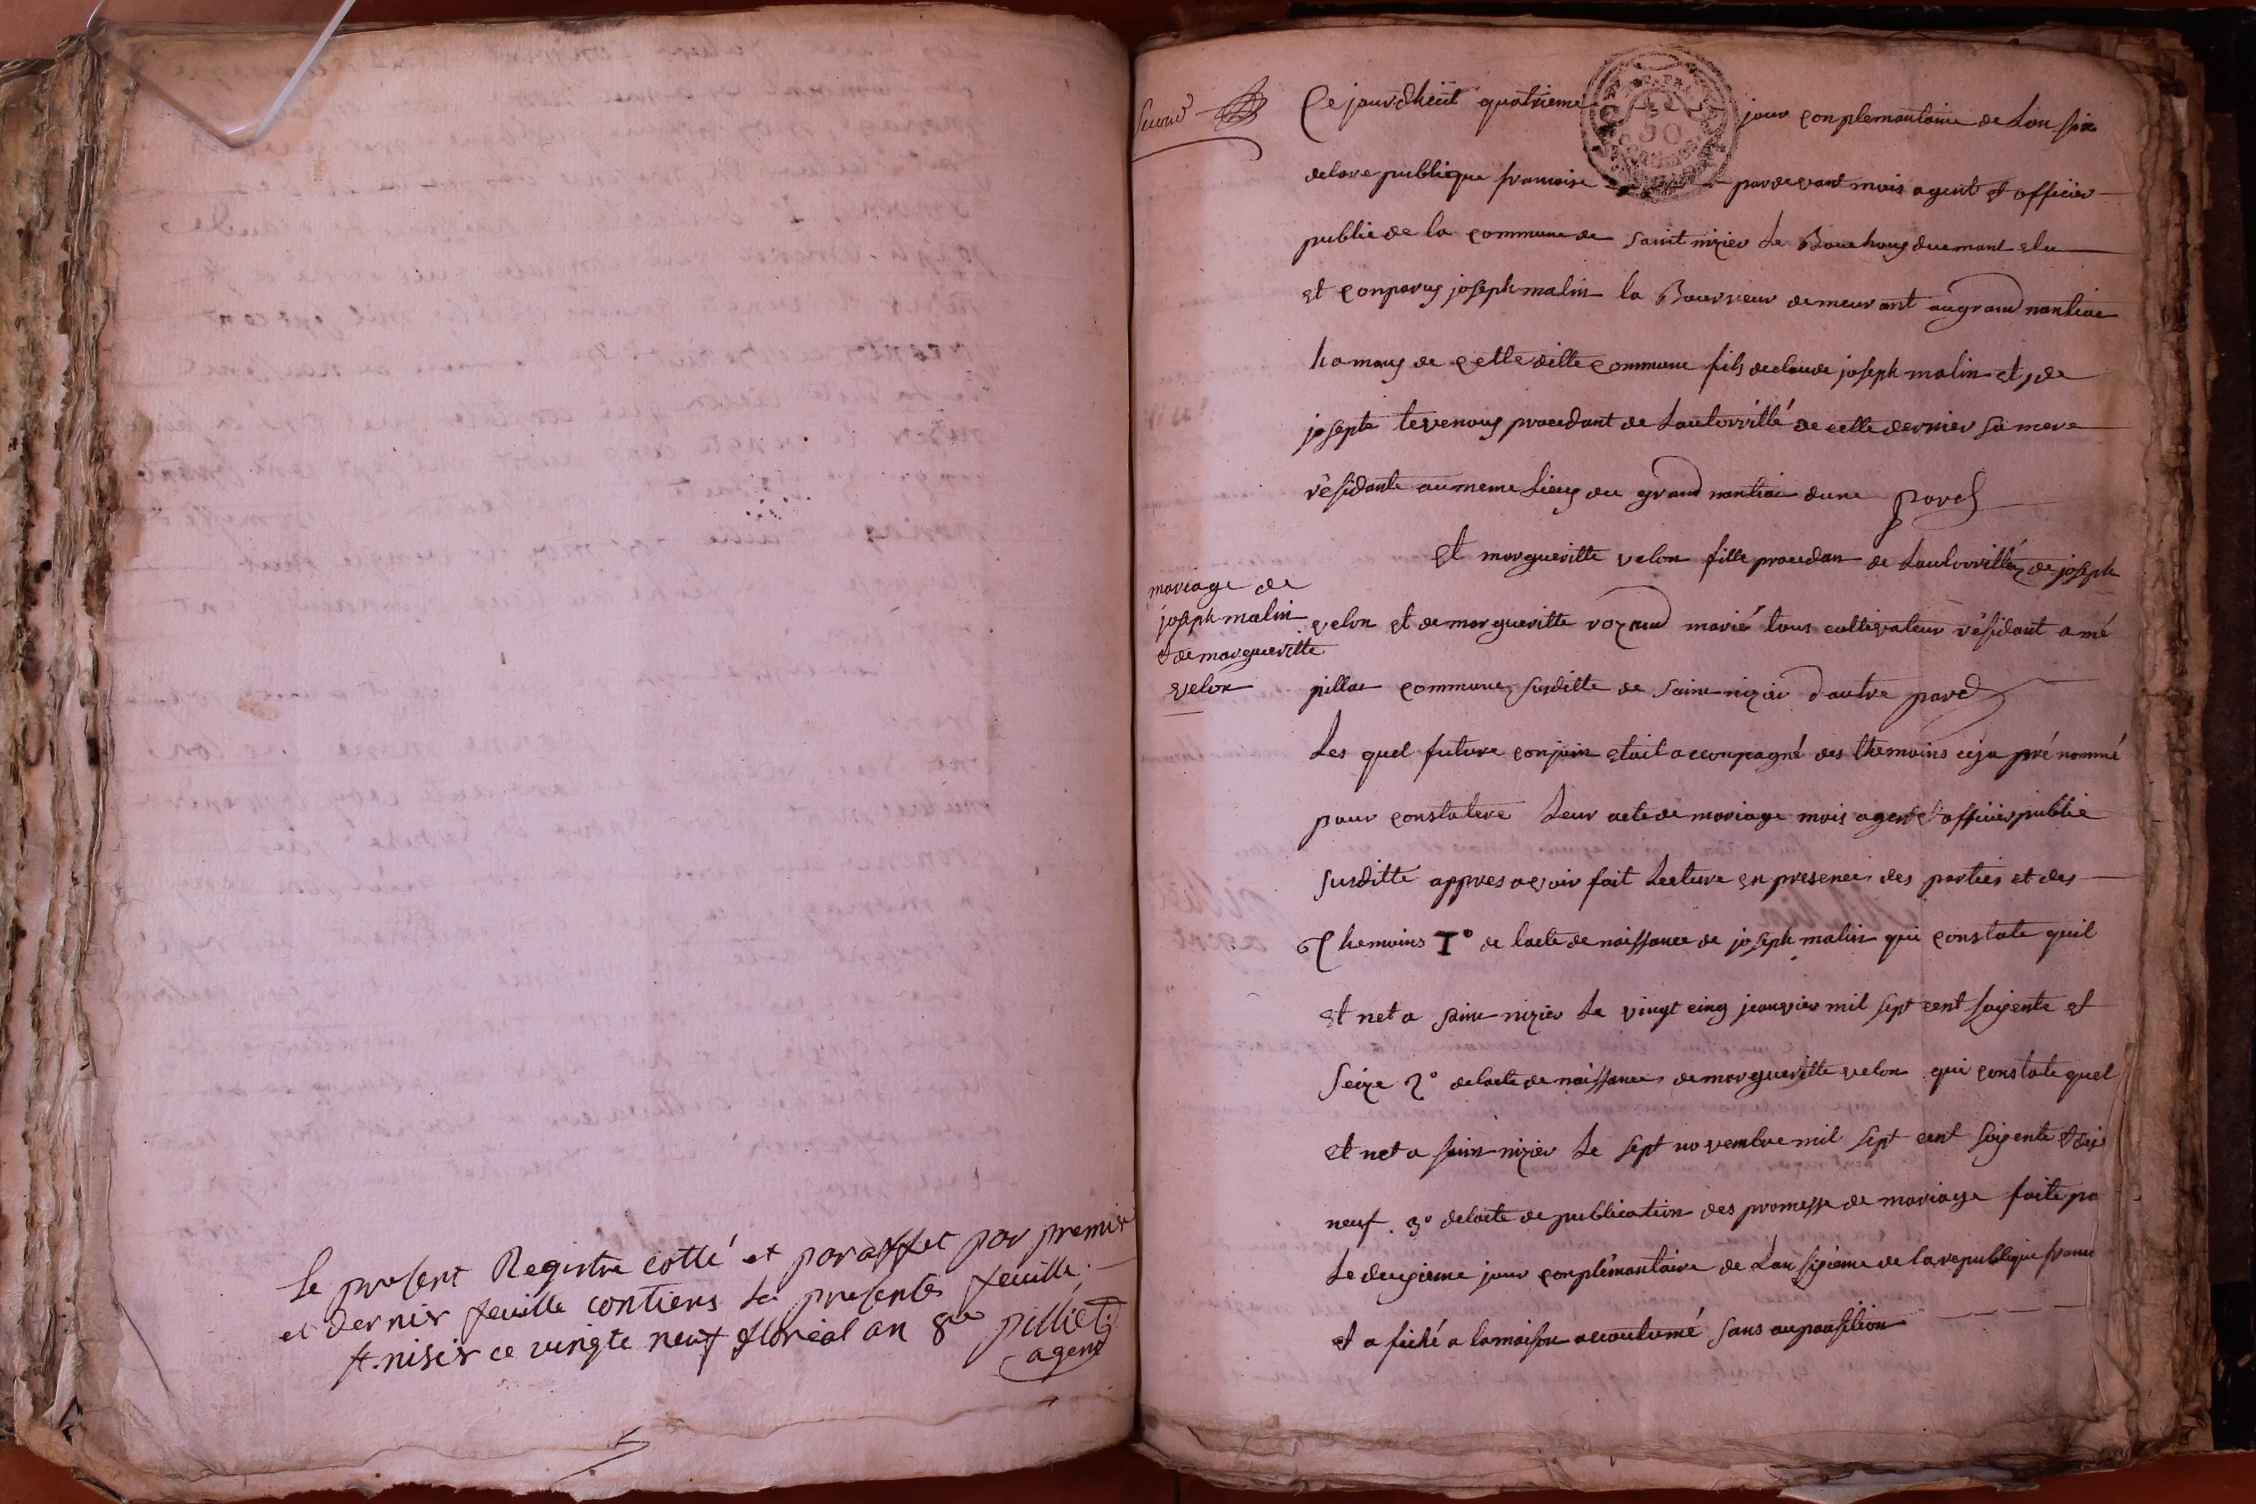 Le present Registre cotté et paraffet par premier
et dernier feuille contiens la presente feuille.
st. nisier ce vingte neuf floréal an 8me pilliet
agent
second
Ce jourdheüit quatrieme jour conplemantaire de Lan six
delare publique francoise pardevant mois agent et officier
public de la commune de saint nizier Le Bouchoug duemant elu
et conparug joseph malin la Bourreur demeurant augrand nantiae
hamaug de cette ditte commune fils declaude joseph malin et de
josepte tevenoug procedant de Lautorritté de cette dernier sa mere
résidante aumeme Lieug du grand nantiae dune pard
et margueritte velon fille procedan de Lautorrittég de joseph
mariage de
joseph malin
et de margueritte
velon
velon et de margueritte voyand marié tous cultivateur résidant a mé
pillae commune susditte de saint nizier dautre pard
Les quel future conjoin etait acconpagné des themoins céja prénommé
pour constatere Leur acte de mariage mois agent et officier public
susditte appres avoir fait Lecture en presence des parties et des
Themoins 1° de lacte de naissance de joseph malin qui constate quil
et net a saint nizier Le vingt cinq jeanvier mil sept cent soigente et
seize 2° delacte de naissance de margueritte velon qui constate quel
et net a sain nizier Le sept novembre mil sept cent soigente et dix
neuf . 3° delacte de publication des promesse de mariage faite pa
Le deugieme jour conplémantaire de Lan sigieme de larepublique franc
et a fiché a lamaison acoutumé sans auposition